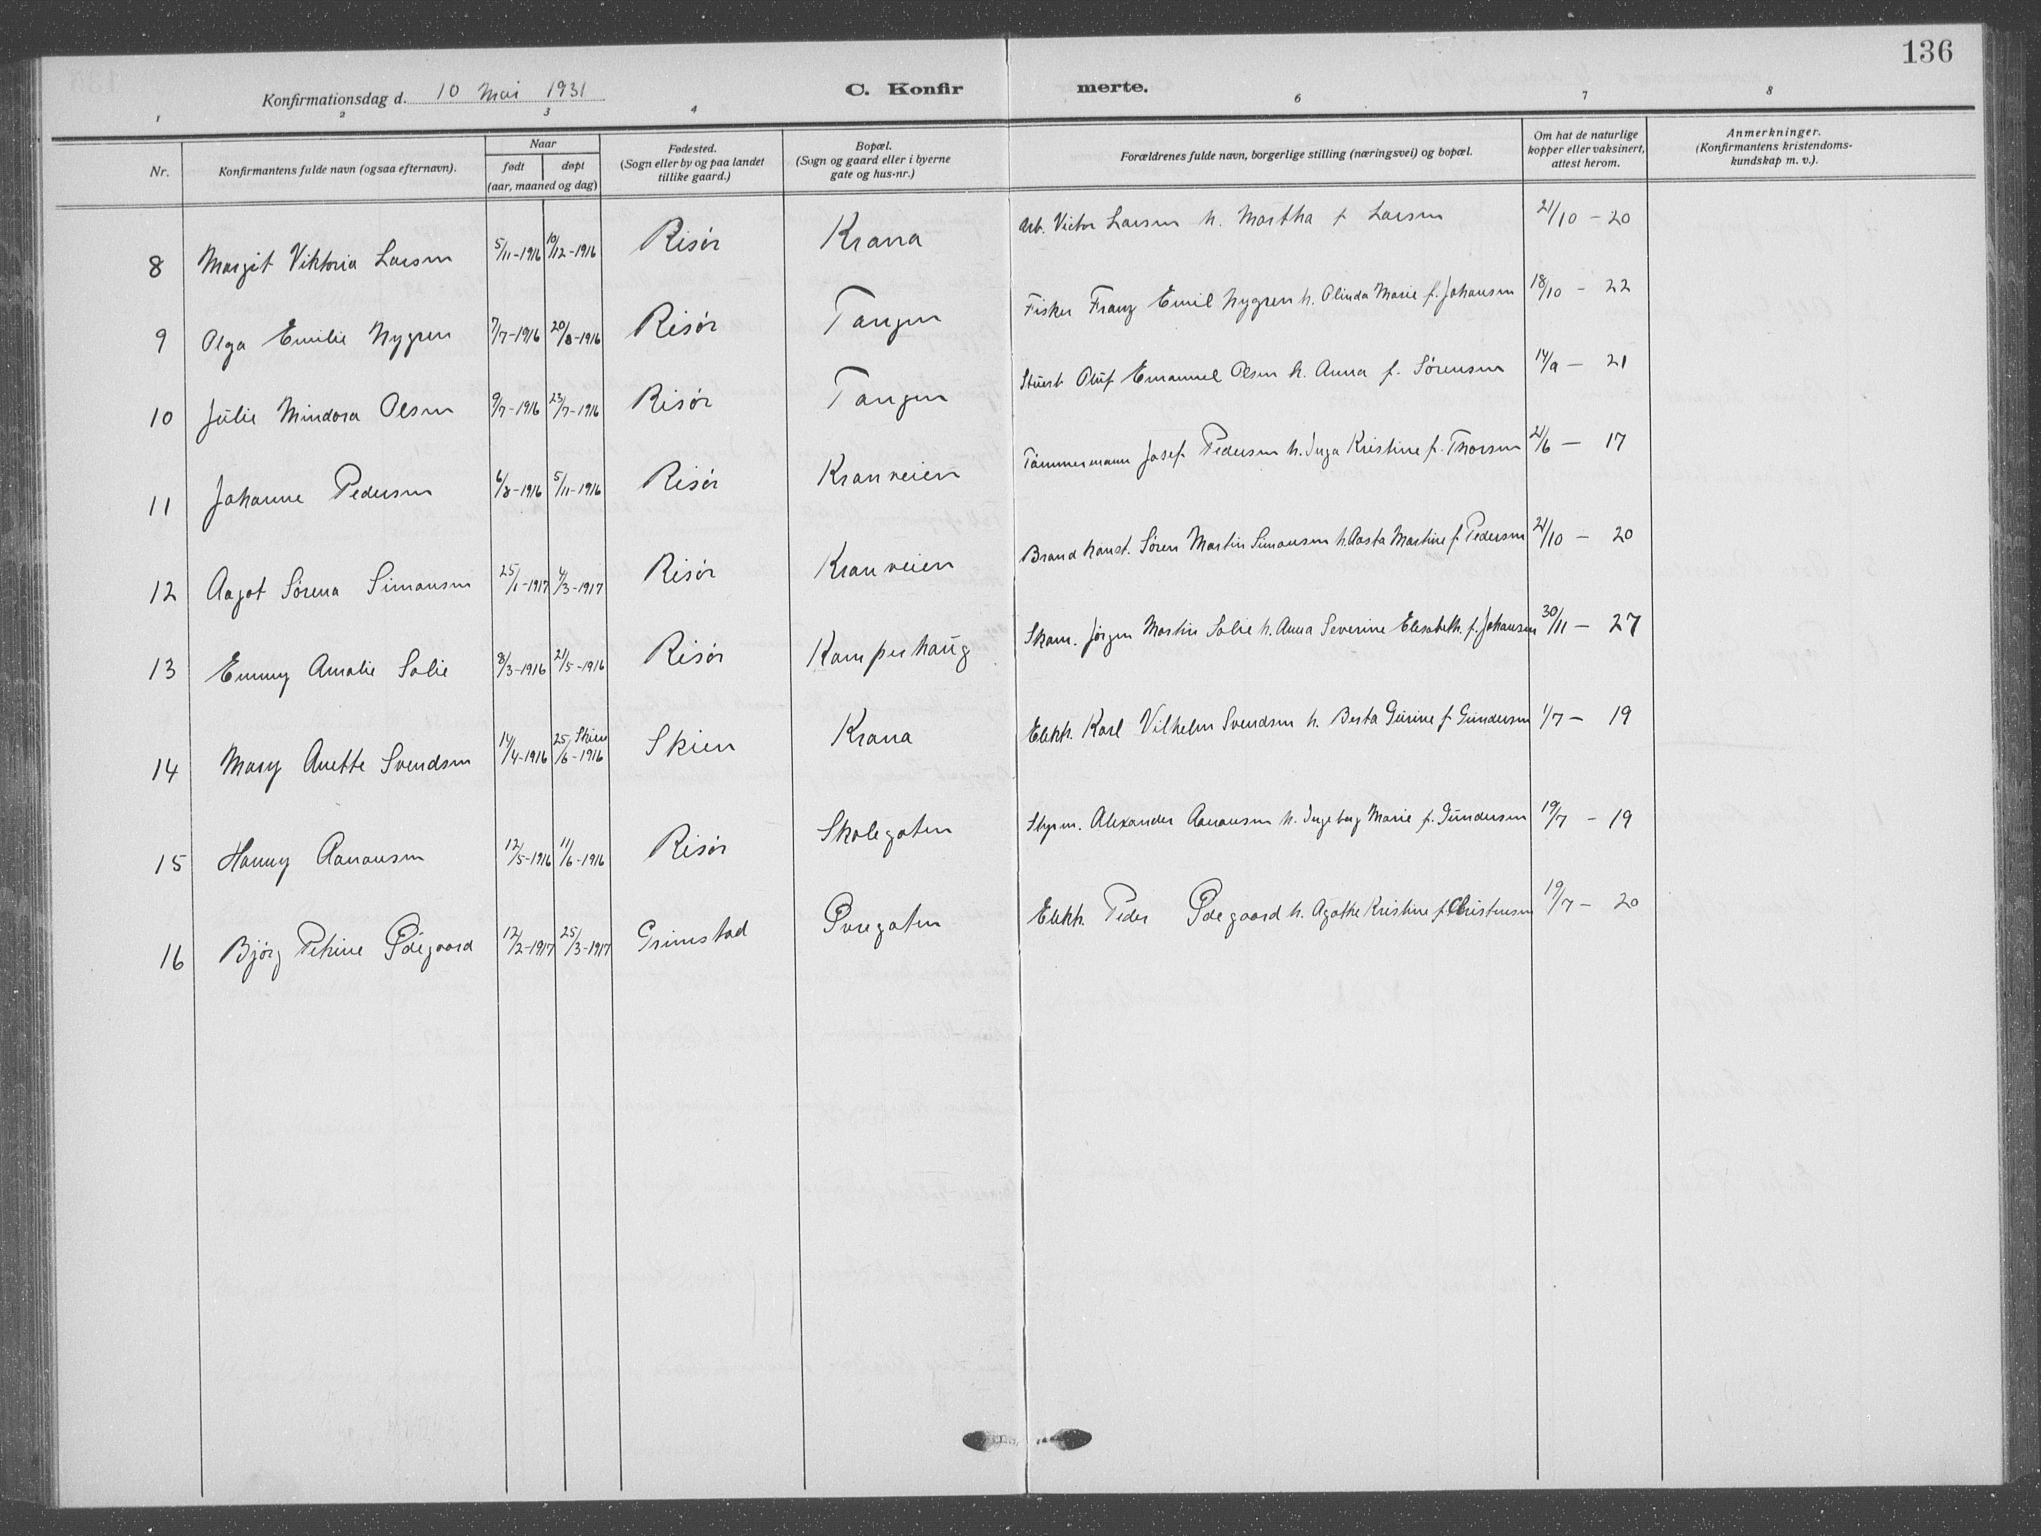 136
Konfirmationsdag d. 10 Mai 1931
C. Konfirmerte.
1 2 3 4 6 7 8
Nr. Konfirmantens fulde navn (ogsaa efternavn). Naar født døpt (aar, maaned og dag) Fødested. (Sogn eller by og paa landet tillike gaard.) Bopæl. (Sogn og gaard eller i byerne gate og hus-nr.) Forældrenes fulde navn, borgerlige stilling (næringsvei) og bopæl. Om hat de naturlige kopper eller vaksinert, attest herom. Anmerkninger. (Konfirmantens kristendoms-kundskap m. v.).
8 Margit Viktoria Larsen 5/11-1916 10/12-1916 Risør Krana Arb. Victor Larsen h. Martha f. Larsen 21/10 - 20
9 Olga Emilie Nygren 7/7-1916 20/8-1916 Risør Tangen Fisker Franz Emil Nygren h. Olinda Marie f. Johansen 18/10 - 22
10 Julie Mindora Olsen 9/7-1916 23/7-1916 Risør Tangen Stuert Oluf Emanuel Olsen h. Anna f. Sørensen 14/9 - 21
11 Johanne Pedersen 6/8-1916 5/11-1916 Risør Kranveien Tømmermann Josef Pedersen h. Inga Kristine f. Thorsen 21/6 - 17
12 Aagot Sørena Simonsen 25/1-1917 4/3-1917 Risør Kranveien Brand konst. Søren Martin Simonsen h. Aasta Martine f. Pedersen 21/10 - 20
13 Emmy Amalie Solie 8/3-1916 21/5-1916 Risør Kamperhaug Skom. Jørgen Martin Solie h. Anna Severine Elisabeth f. Johansen 30/11 - 27
14 Mary Anette Svendsen 14/4-1916 25/6-1916 Skien Skien Krana Elekk. Karl Vilhelm Svendsen h. Berta Gurine f. Gundersen 1/7 - 19
15 Hanny Aanonsen 12/5-1916 11/6-1916 Risør Skolegaten Styrm. Alexander Aanonsen h. Ingeborg Marie f. Gundersen 19/7 - 19
16 Bjørg Petrine Ødegaard 12/2-1917 25/3-1917 Grimstad Øvregaten Elekk. Peder Ødegaard h. Agathe Kristine f. Christensen 19/7 - 20